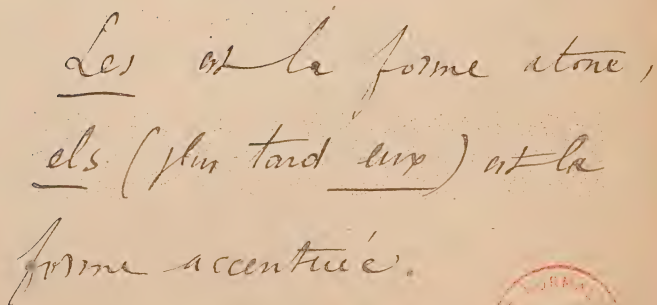 Les est la forme atone,
els (plus tard eux) est la
forme accentuée.